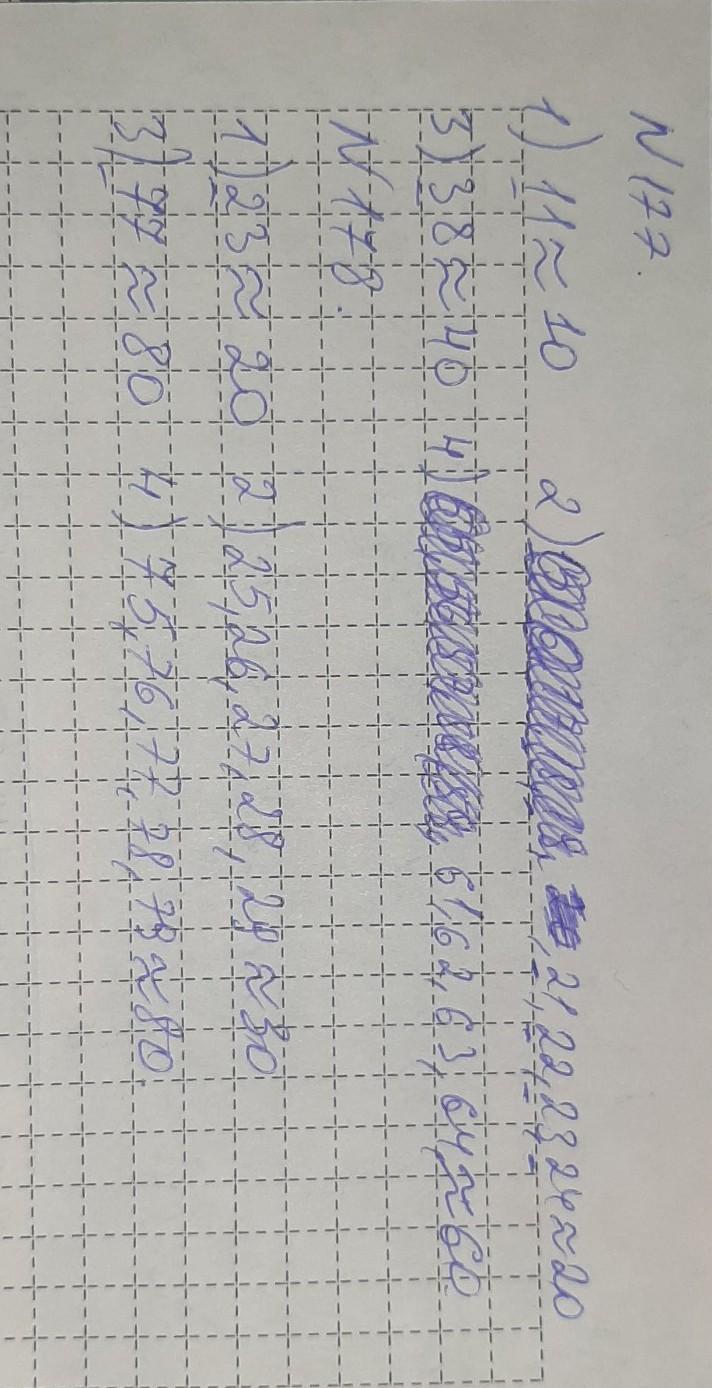 N 177.
1) 11 ≈ 10 2) 21, 22, 23 24 ≈ 20
3) 38 ≈ 40 4) 61, 62, 63, 64 ≈ 60
N 178.
1) 23 ≈ 20 2) 25, 26, 27, 28, 29 ≈ 30
3) 77 ≈ 80 4) 75, 76, 77, 78, 79 ≈ 80.